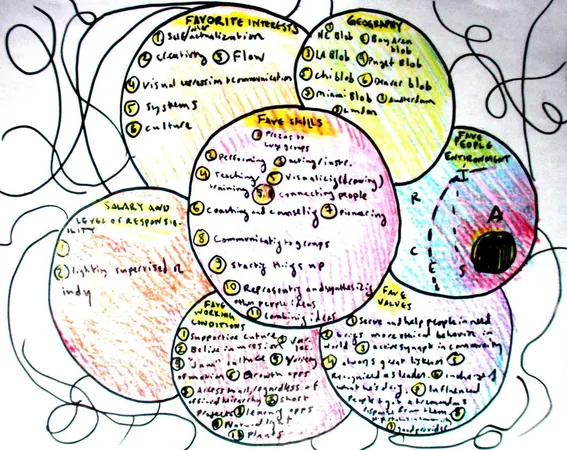 FAVORITE INTERESTS
① Self/actualization
② creativity ③ Flow
④ Visual expression + communication
⑤ Systems
⑥ Culture
GEOGRAPHY
① NE Blob ② Bay Area blob
③ LA Blob ④ Puget Blob
⑤ Chi blob ⑥ Denver blob
⑦ Miami Blob Amsterdam
London
FAVE SKILLS
①
groups
② Performing ③ acting/instr.
④ Teaching/ ⑤ Visualizing (drawing)
training connecting people
⑥ Coaching and counseling ⑦ pioneering
⑧ Communicating to groups
⑨ Starting things up
⑩ Representing and synthesizing
other people ideas
⑪ Combining ideas
FAVE
PEOPLE
ENVIRONMENT
R
I
A
C
E
S
SALARY AND
LEVEL OF RESPONSIBILITY
①
② lightly supervised or
indy
FAVE
WORKING
CONDITIONS
① Supportive culture
② Believe in mission
"Jam" culture Variety
Growth opps
Access to all, regardless of
hierarchy short
Projects learning opps
Natural light
Plants
FAVE
VALUES
① Serve and help people in need
② brings more ethical behavior to
world ③ active synaph in community
④ always great listener ⑤
Recognized as leader.
⑦ Influenced
People & got a tremendous
response from them ⑧
good provider